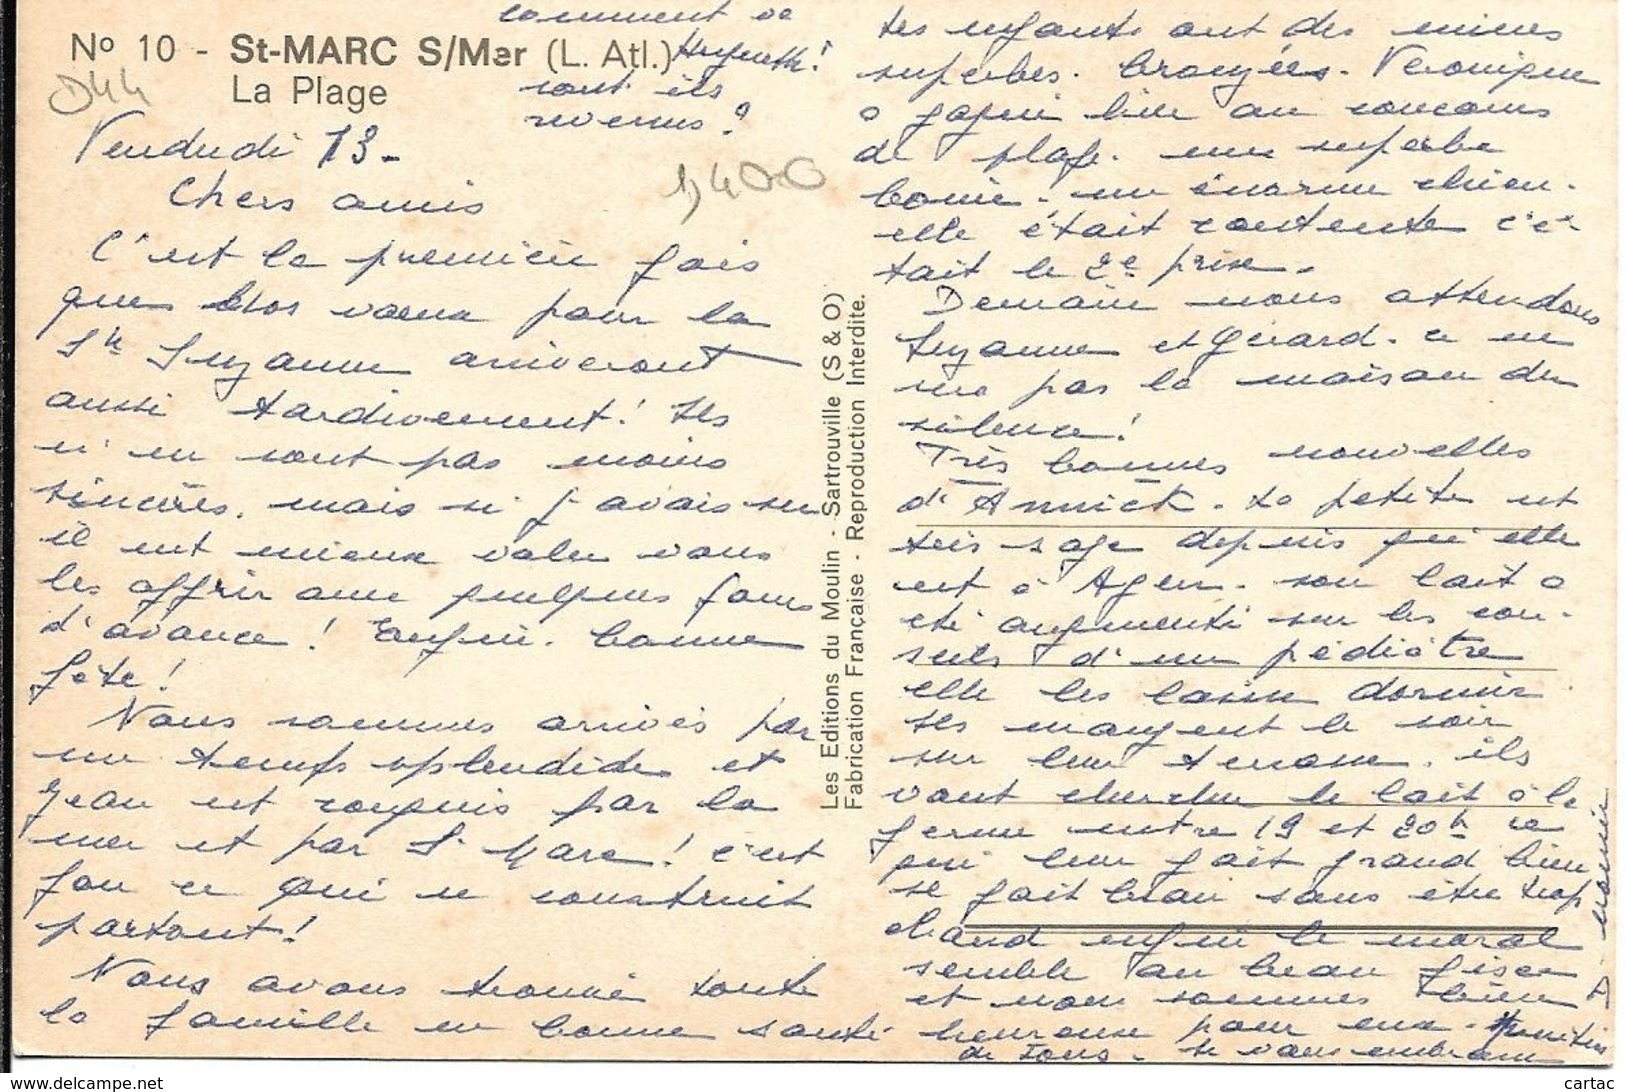 N° 10 - St-MARC S/Mer (L. Atl.)
La Plage
D44
comment va
Huguette !
sont ils
revenus ?
1,400
Vendredi 13 -
Chers amis
C'est la première fois
que nos vœux pour la
Ste Suzanne arriveront
aussi tardivement ! Ils
n'en sont pas moins
sincères, mais si j'avais su
il eut mieux valu vous
les offrir avec quelques jours
d'avance ! Enfin. bonne
fête !
Nous sommes arrivés par
un temps splendide et
Jean est conquis par la
mer et par St Marc ! c'est
fou ce qui se construit
partout !
Nous avons trouvé toute
la famille en bonne santé
Les Editions du Moulin - Sartrouville (S & O)
Fabrication Française - Reproduction Interdite.
les enfants ont des mines
superbes. bronzées. Véronique
a gagné hier au concours
de plage. une superbe
bouée. un énorme chien.
elle était contente c'é-
tait le 2e prix.
Demain nous attendons
Suzanne et Gérard. ce ne
sera pas la maison du
silence !
Très bonnes nouvelles
d'Annick. La petite est
très sage depuis qu'elle
est à Agen. son lait a
été augmenté sur les con-
seils d'un pédiatre
elle les laisse dormir.
Ils mangent le soir
sur leur terrasse. ils
vont chercher le lait à la
ferme entre 19 et 20h ce
qui leur fait grand bien
il fait beau sans être trop
chaud enfin le moral
semble au beau fixe
et nous sommes bien
heureux pour eux.
de tous. Je vous embrasse